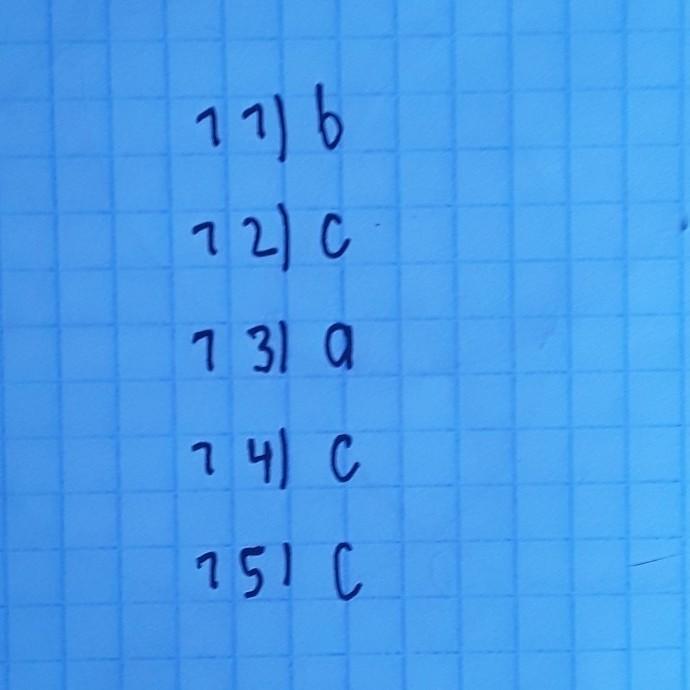 11) b
12) c
13) a
14) c
15) c